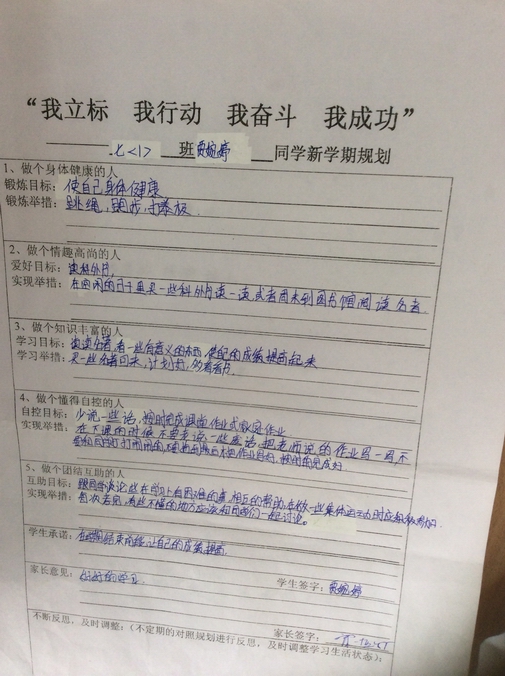 “我立标 我行动 我奋斗 我成功”
七<1>班 贾婉婷 同学新学期规划
1、做个身体健康的人
锻炼目标：使自己身体健康
锻炼举措：跳绳，跑步，打拳板
2、做个情趣高尚的人
爱好目标：读科外书，
实现举措：在空闲的日子里买一些科外书读一读，或者周末到图书馆阅读名著
3、做个知识丰富的人
学习目标：读名著，看一些有意义的东西，使自己的成绩提高起来
学习举措：买一些名著回来，计划书，多看看书
4、做个懂得自控的人
自控目标：少说一些话，按时完成课堂作业或家庭作业
实现举措：在下课的时候不要多说一些废话，把老师说的作业写一写，不
5、做个团结互助的人
互助目标：跟同学谈论些在学习上有困难的事，相互的帮助，在做一些集体运动时应
实现举措：有些不懂的地方应该和同学们一起讨论。
学生承诺：让自己的成绩提高
家长意见：好好的学习
学生签字：贾婉婷
家长签字：
不断反思，及时调整：（不定期的对照规划进行反思，及时调整学习生活状态）：